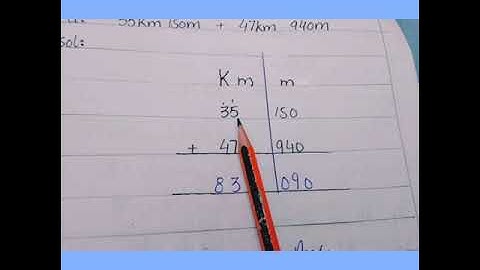 35Km 150m + 47km 940m
Sol:
Km m
35 150
+ 47 940
83 090